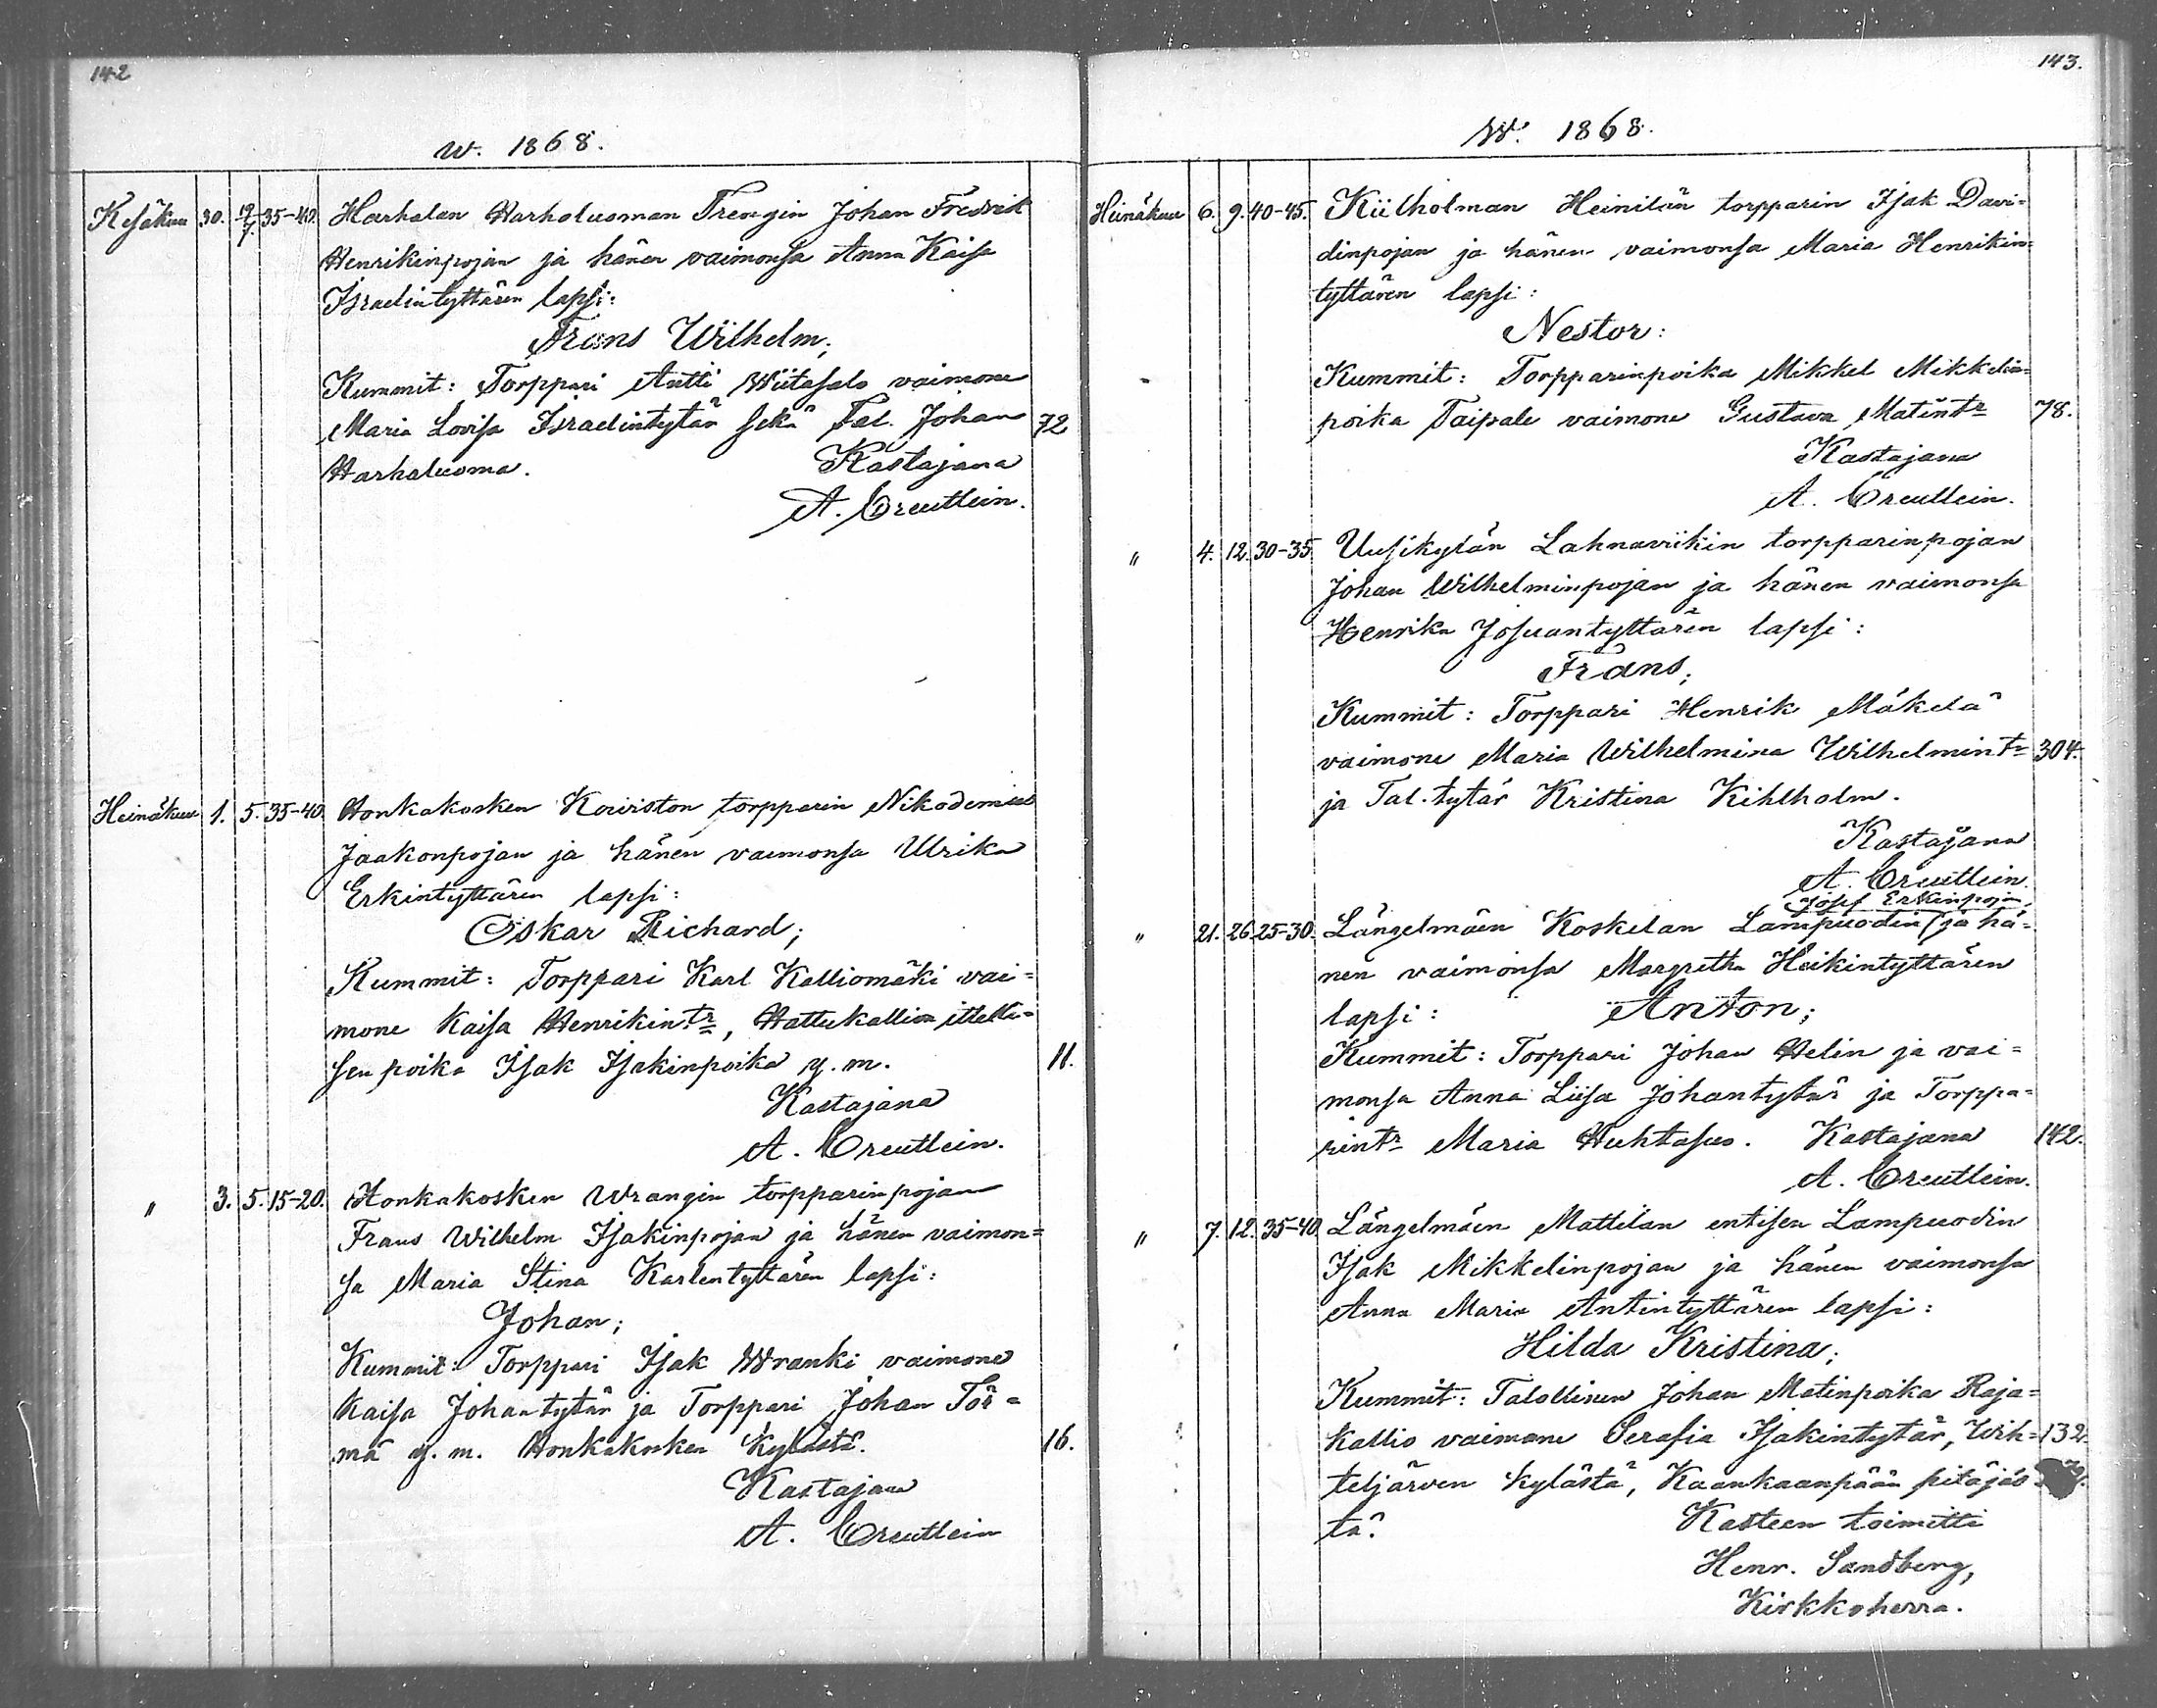 142
w. 1868.
Kesäkuu 30. 12/7. 35-40. Harhalan Harhaluoman Trengin Johan Fredrik
Henrikinpojan ja hänen vaimonsa Anna Kaisa
Israelintyttären lapsi:
Frans Wilhelm;
Kummit: Torppari Antti Wiitasalo vaimone
Maria Lovisa Israelintytär sekä Tal. Johan 72
Harhaluoma. Kastajana
A. Creutlein.
Heinäkuu 1. 5. 35-40. Honkakosken Kouviston torpparin Nikodemus
Jaakonpojan ja hänen vaimonsa Ulrika
Erkintyttären lapsi:
Oskar Richard;
Kummit: Torppari Karl Kalliomäki vai=
mone Kaisa Henrikintr, Hattukallion ittelli=
sen poika Isak Isakinpoika y. m. 11.
Kastajana
A. Creutlein.
" 3. 5. 15-20. Honkakosken Wrangin torpparinpojan
Frans Wilhelm Isakinpojan ja hänen vaimon=
sa Maria Stina Karlentyttären lapsi:
Johan;
Kummit: Torppari Isak Wranki vaimone
Kaisa Johantytär ja Torppari Johan Tör=
mä y. m. Honkakosken kylästä. 16.
Kastajana
A. Creutlein
143.
W. 1868.
Heinäkuu 6. 9. 40-45. Kiilholman Heinilän torpparin Isak Davi=
dinpojan ja hänen vaimonsa Maria Henrikin=
tyttären lapsi:
Nestor:
Kummit: Torpparinpoika Mikkel Mikkelin=
poika Taipale vaimone Gustava Matintr 78.
Kastajana
A. Creutlein.
" 4. 12. 30-35. Uusikylän Lahnaviikin torpparinpojan
Johan Wilhelminpojan ja hänen vaimonsa
Henrika Josuantyttären lapsi:
Frans;
Kummit: Torppari Henrik Mäkelä
vaimone Maria Wilhelmina Wilhelmintr 304.
ja Tal. tytär Kristina Kihlholm.
Kastajana
A. Creutlein.
Josef Erkinpojan
" 21. 26. 25-30. Längelmäen Koskelan Lampuodin (ja hä=
nen vaimonsa Margretha Heikintyttären
lapsi: Anton;
Kummit: Torppari Johan Helin ja vai=
monsa Anna Liisa Johantytär ja Torppa=
rintr Maria Huhtasuo. Kastajana 142.
A. Creutlein.
" 7. 12. 35-40. Längelmäen Mattilan entisen Lampuodin
Isak Mikkelinpojan ja hänen vaimonsa
Anna Maria Antintyttären lapsi:
Hilda Kristina;
Kummit: Talollinen Johan Matinpoika Raja=
kallio vaimone Serafia Isakintytär, Wih= 132.
teljärven kylästä, Kaankaanpään pitäjäs
tä. Kasteen toimitti
Henr. Sandberg,
Kirkkoherra.